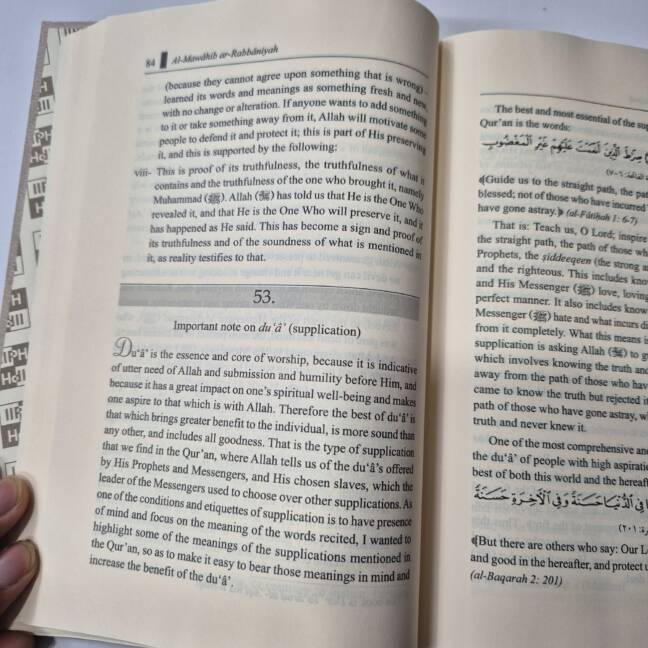 84 Al-Mawâhib ar-Rabbâniyah
(because they cannot agree upon something that is wrong) –
learned its words and meanings as something fresh and new,
with no change or alteration. If anyone wants to add something
to it or take something away from it, Allah will motivate some
people to defend it and protect it; this is part of His preserving
it, and this is supported by the following:
viii- This is proof of its truthfulness, the truthfulness of what it
contains and the truthfulness of the one who brought it, namely
Muhammad (ﷺ). Allah (ﷻ) has told us that He is the One Who
revealed it, and that He is the One Who will preserve it, and it
has happened as He said. This has become a sign and proof of
its truthfulness and of the soundness of what is mentioned in
it, as reality testifies to that.
53.
Important note on du‘â’ (supplication)
Du‘â’ is the essence and core of worship, because it is indicative
of utter need of Allah and submission and humility before Him, and
because it has a great impact on one's spiritual well-being and makes
one aspire to that which is with Allah. Therefore the best of du‘â’ is
that which brings greater benefit to the individual, is more sound than
any other, and includes all goodness. That is the type of supplication
that we find in the Qur’an, where Allah tells us of the du‘â’s offered
by His Prophets and Messengers, and His chosen slaves, which the
leader of the Messengers used to choose over other supplications. As
one of the conditions and etiquettes of supplication is to have presence
of mind and focus on the meaning of the words recited, I wanted to
highlight some of the meanings of the supplications mentioned in
the Qur’an, so as to make it easy to bear those meanings in mind and
increase the benefit of the du‘â’.
The best and most essential of the
Qur’an is the words:
صِرَٰطَ ٱلَّذِينَ أَنْعَمْتَ عَلَيْهِمْ غَيْرِ ٱلْمَغْضُوبِ
﴾Guide us to the straight path, the
blessed; not of those who have incurred
have gone astray.﴿ (al-Fâtiḥah 1: 6-7)
That is: Teach us, O Lord; inspire
the straight path, the path of those
Prophets, the ṣiddeeqeen (the strong
and the righteous. This includes
and His Messenger (ﷺ) love, loving
perfect manner. It also includes
Messenger (ﷺ) hate and what incurs
from it completely. What this means
supplication is asking Allah (ﷻ) to
which involves knowing the truth and
away from the path of those who
came to know the truth but rejected
path of those who have gone astray,
truth and never knew it.
One of the most comprehensive
the du‘â’ of people with high
best of both this world and the
فِى ٱلدُّنْيَا حَسَنَةً وَفِى ٱلْـَٔاخِرَةِ حَسَنَةً
﴾But there are others who say: Our
and good in the hereafter, and protect
(al-Baqarah 2: 201)